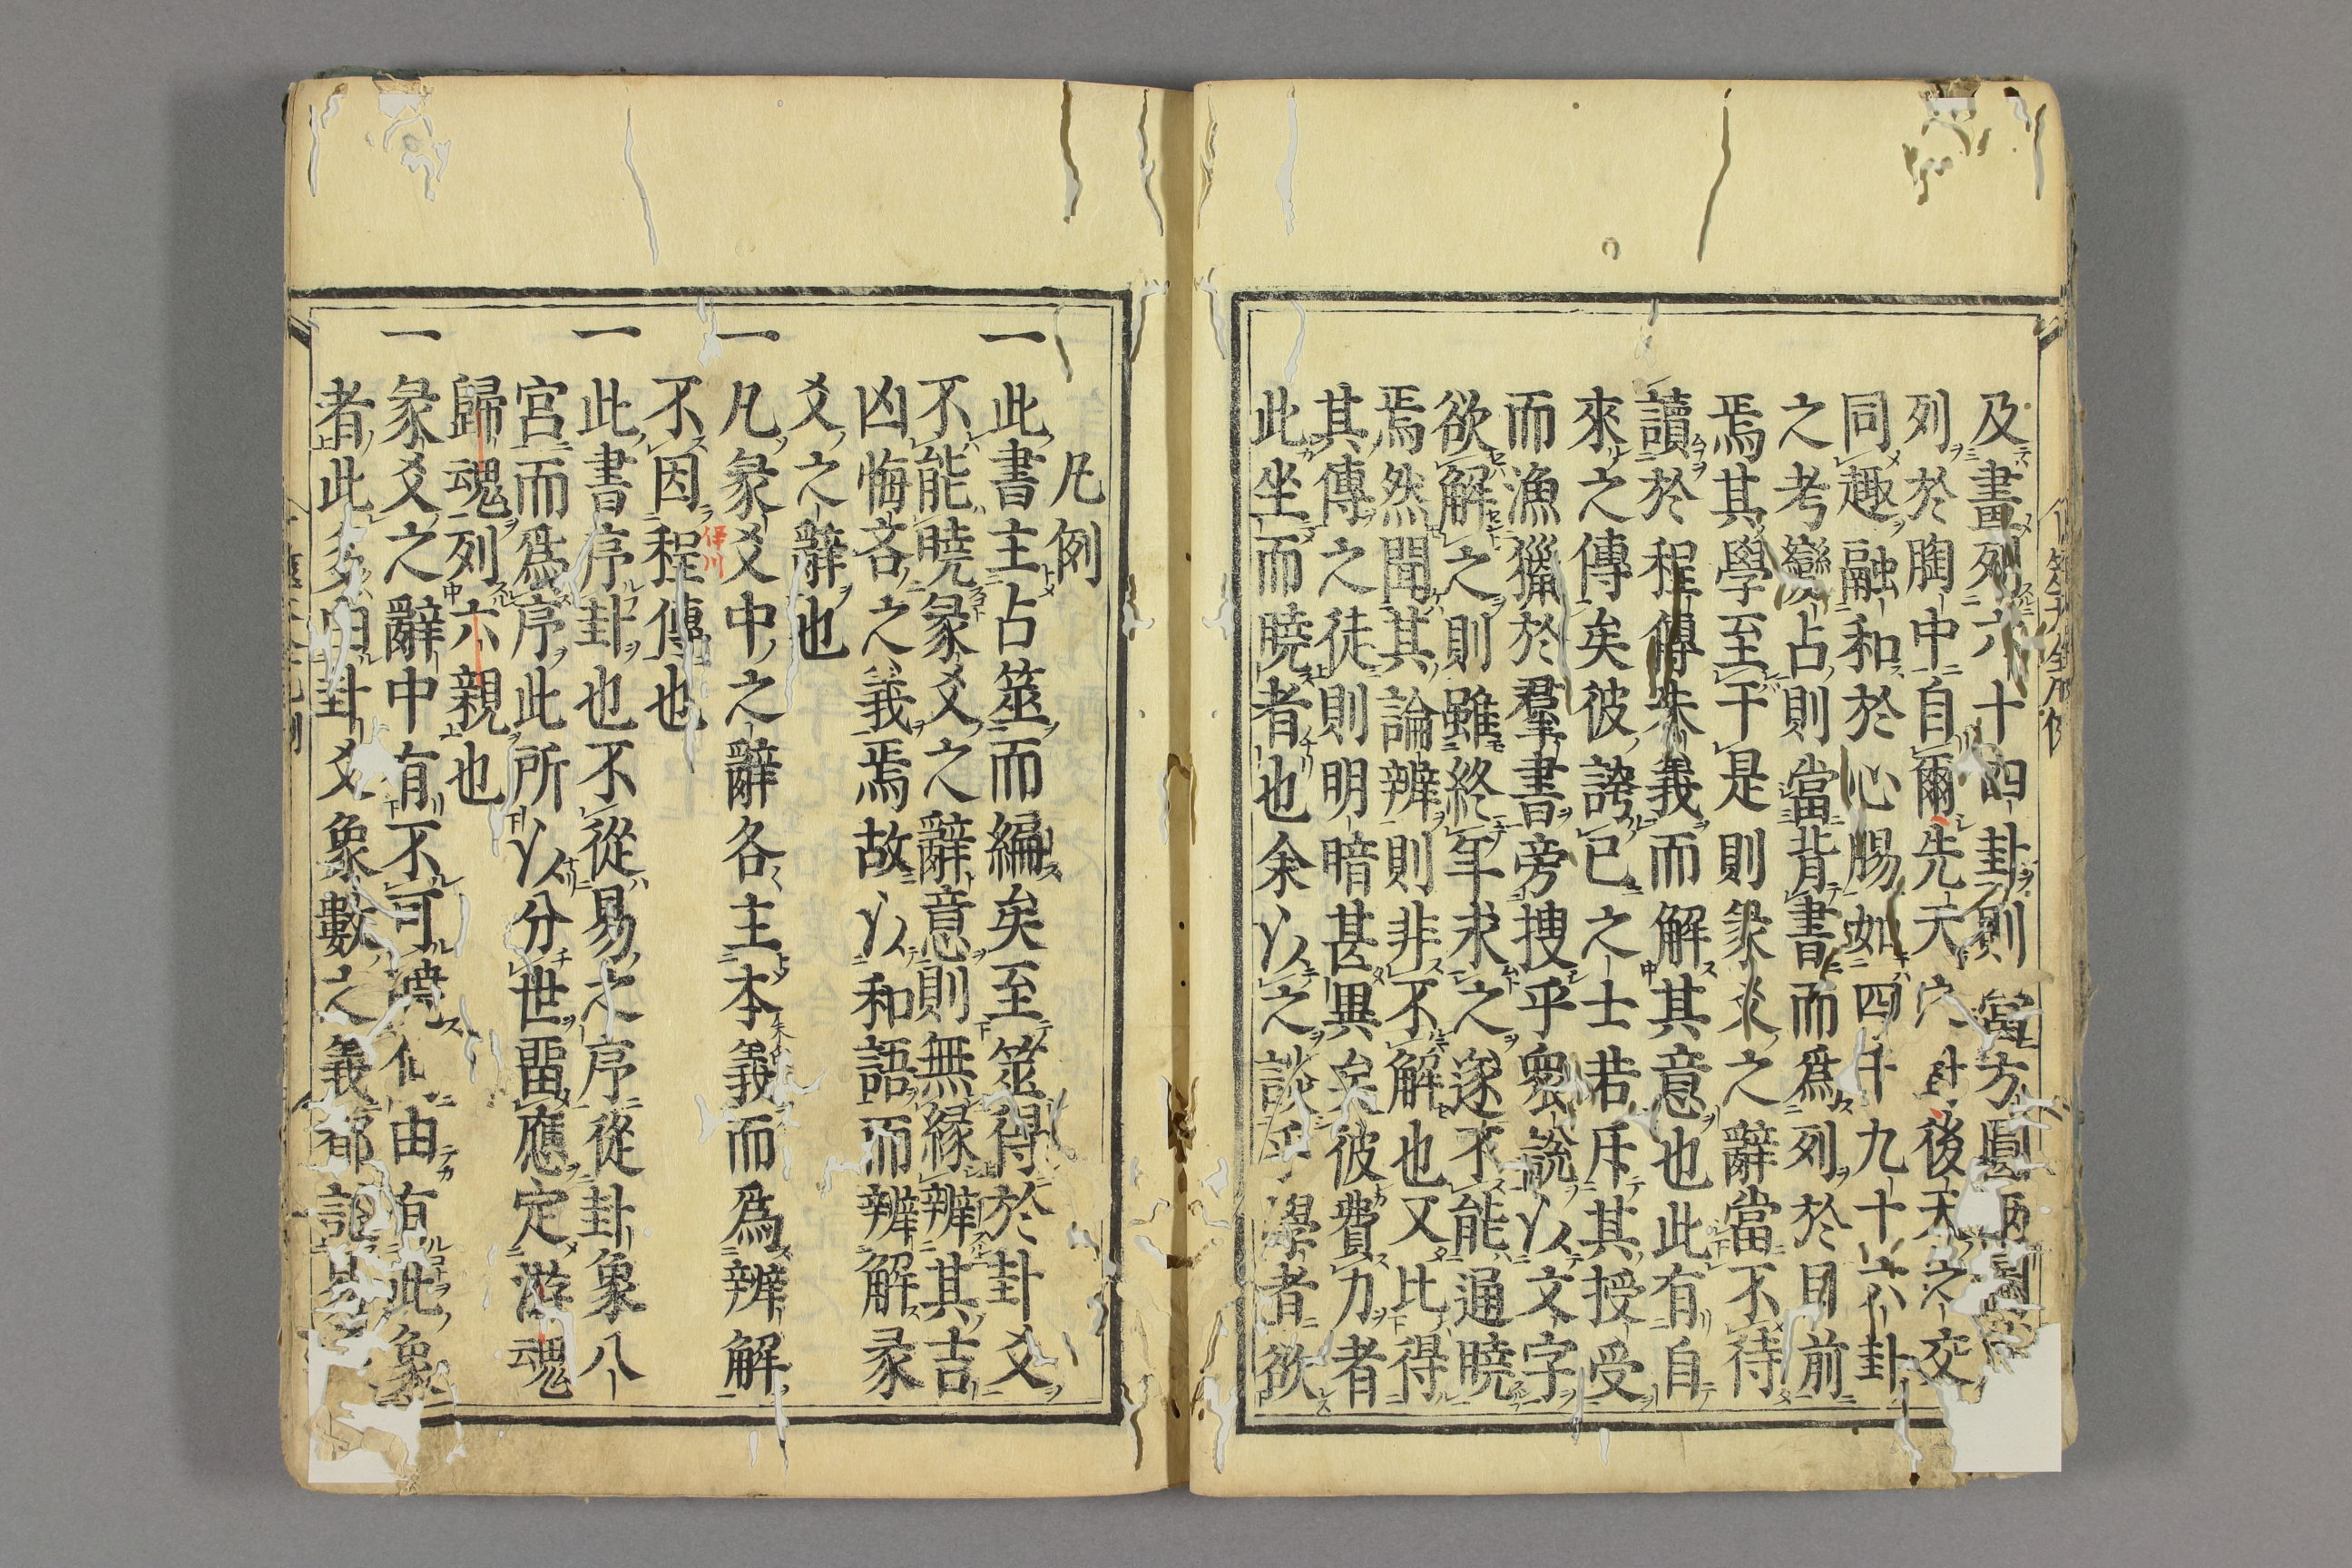 及畫列六十四卦則當方圓兩圖
列於胸中自爾先天後天之交
同趣融和於心腸如四千九十六卦
之考變占則當背書而爲列於目前
焉其學至于是則彖爻之辭當不待
讀於程傳朱義而解其意也此有自
來之傳矣彼誇已之士若斥其授受
而漁獵於羣書旁搜乎衆說以文字
欲解之則雖終年求之遂不能通曉
焉然聞其論辨則非不解也又比得
其傳之徒則明暗甚異矣彼費力者
此坐而曉者也余以之談乎學者欲
凡例
一此書主占筮而編矣至筮得於卦爻
不能曉彖爻之辭意則無緣辨其吉
凶悔吝之義焉故以和語而辨解彖
爻之辭也
一凡彖爻中之辭各主本義而爲辨解
不因程傳也
伊川
一此書序卦也不從易之序從卦象八
宮而爲序此所以分世畱應定游魂
歸魂列六親也
一彖爻之辭中有不可曉何由有此象
者此卦爻象數之義都